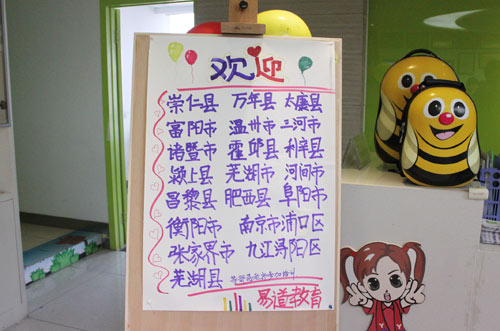 欢迎
崇仁县 万年县 太康县
富阳市 温州市 三河市
诸暨市 霍邱县 利辛县
颍上县 芜湖市 河间市
昌黎县 肥西县 阜阳市
衡阳市 南京市浦口区
张家界市 九江浔阳区
芜湖县
易道教育